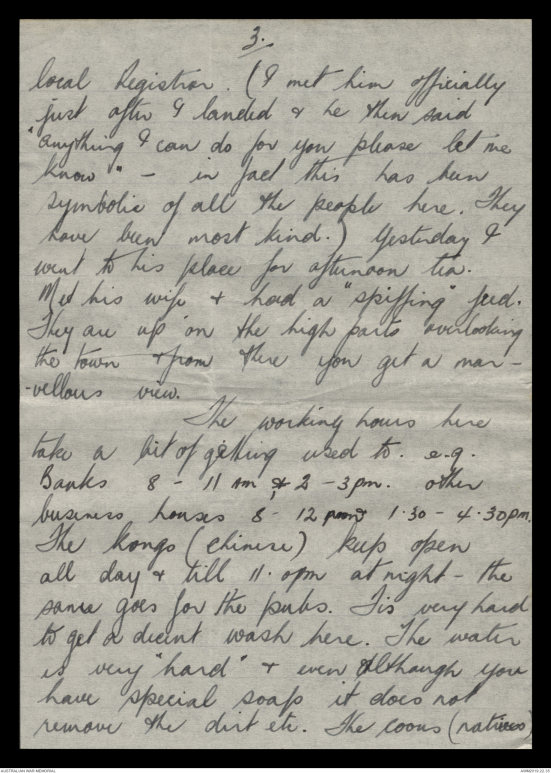 3.
local Registrar. (I met him officially
just after I landed & he then said
"Anything I can do for you please let me
know" - in fact this has been
symbolic of all the people here. They
have been most kind.) Yesterday I
went to his place for afternoon tea.
Met his wife & had a "spiffing" feed.
They are up on the high parts overlooking
the town & from there you get a mar-
-vellous view.
The working hours here
take a bit of getting used to. e.g.
Banks 8 - 11 am & 2 - 3pm. other
business houses 8 - 12 & 1.30 - 4.30pm.
The Kongs (Chinese) keep open
all day & till 11. opm at night - the
same goes for the pubs. Tis very hard
to get a decent wash here. The water
is very "hard" & even although you
have special soap it does not
remove the dirt etc. The coons (natives)
AUSTRALIAN WAR MEMORIAL
AWM2019.22.37